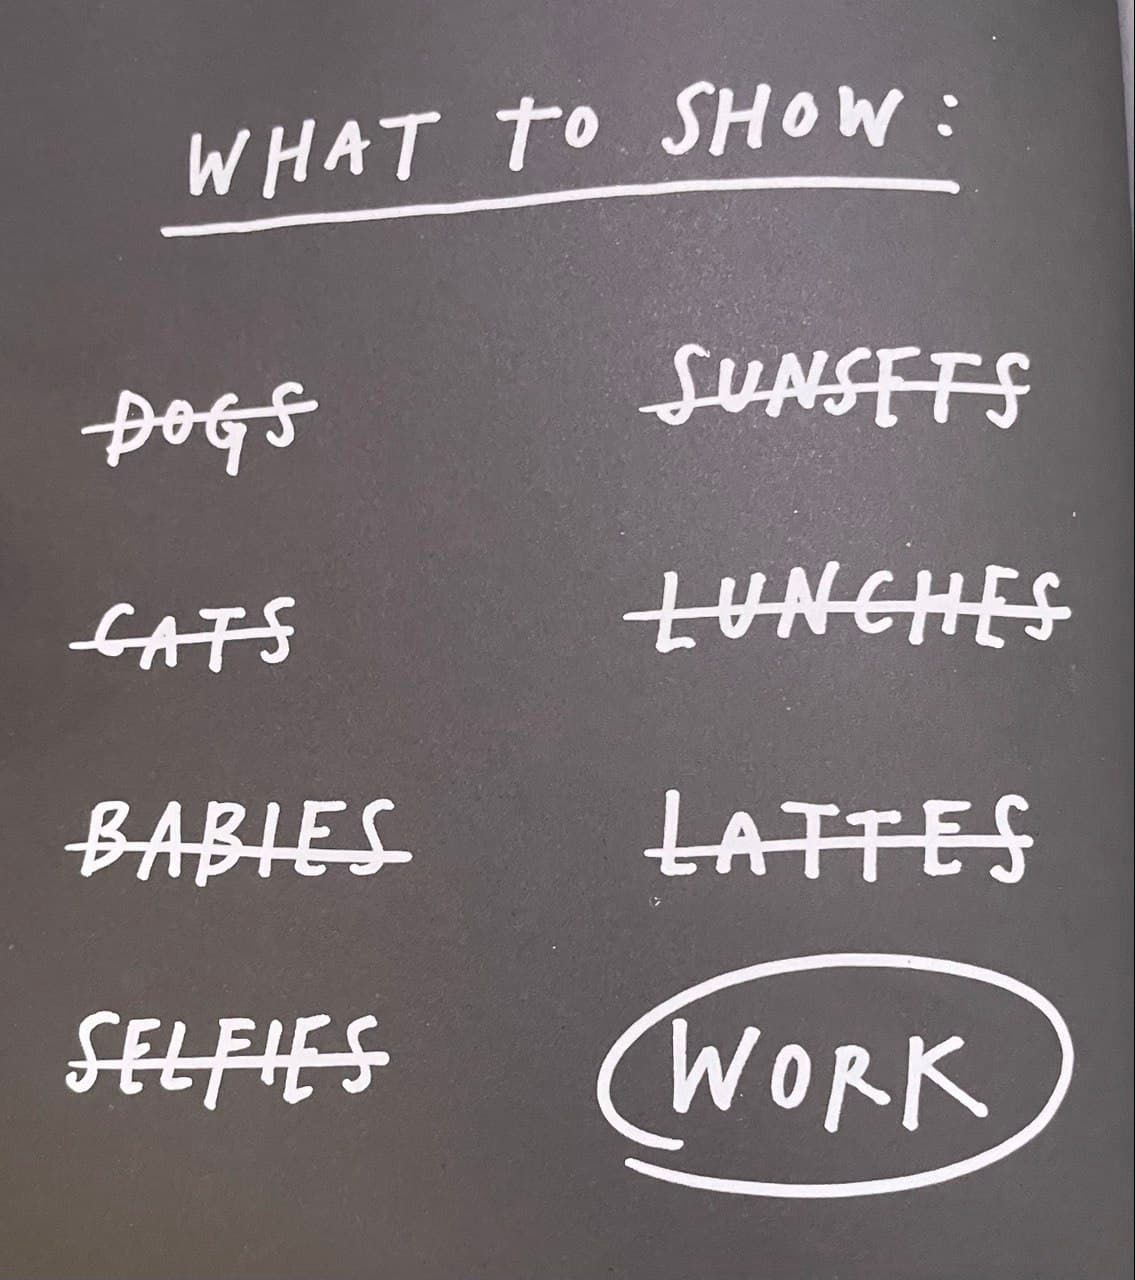 WHAT TO SHOW:
DOGS
SUNSETS
CATS
LUNCHES
BABIES
LATTES
SELFIES
WORK